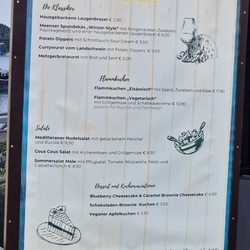 Die Klassiker
Hausgebackene Laugenbrezel € 2.50
Meenzer Spundekäs „Winzer-Style“ mit feingehackten Zwiebeln
Paprikagewürz und einer hausgebackenen Laugenbrezel € 9.50
Potato Dippers mit Schnittlauch Sour Cream € 5.90
Currywurst vom Landschwein mit Potato Dippers € 9.50
Metzgerbratwurst mit Brot und Senf € 5.00
Flammkuchen
Flammkuchen „Elsässisch“ mit Speck, Zwiebeln und Käse € 11.90
Flammkuchen „Vegetarisch“
mit Grillgemüse und Schafskäsecreme € 10.90
jeweils mit Rucola und Parmesan
Salate
Mediterraner Nudelsalat mit gebackenem Fenchel
und Rucola € 8.50
Cous Cous Salat mit Kichererbsen und Grillgemüse € 8.50
Sommersalat Mole mit Pflücksalat, Tomate, Mozzarella, Pesto und
Dessert und Kuchenvariationen
Blueberry Cheesecake & Caramel Brownie Cheesecake € 4.00
Schokoladen-Brownie Kuchen € 3.50
Veganer Apfelkuchen € 3.50